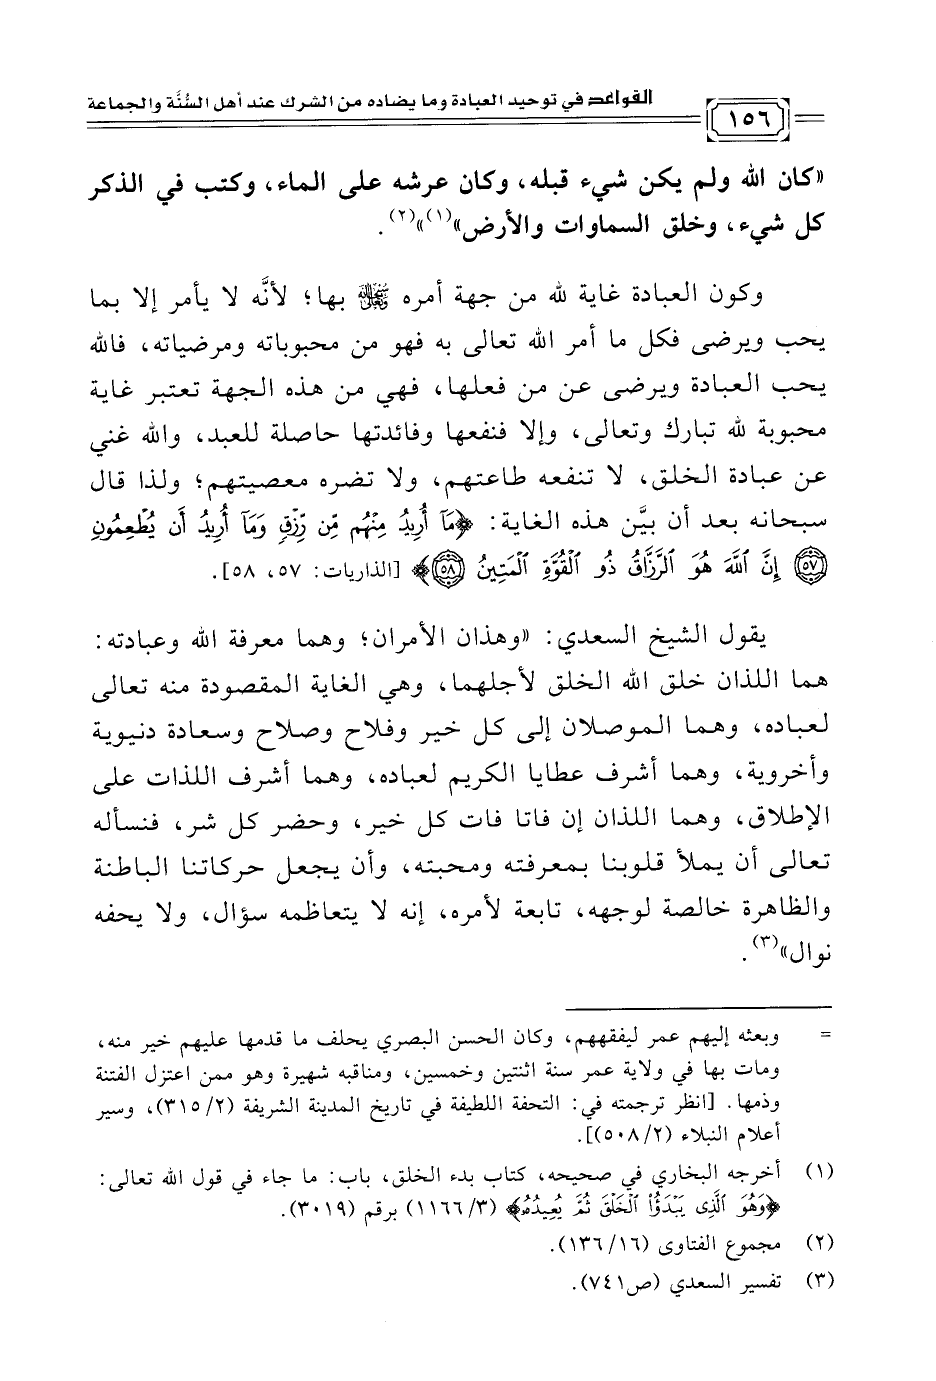 القواعد في توحيد العبادة وما يضاده من الشرك عند أهل السُّنَّة والجماعة
١٥٦
«كان الله ولم يكن شيء قبله، وكان عرشه على الماء، وكتب في الذكر
كل شيء، وخلق السماوات والأرض»(١)»(٢).
وكون العبادة غاية لله من جهة أمره ﷾ بها؛ لأنَّه لا يأمر إلا بما
يحب ويرضى فكل ما أمر الله تعالى به فهو من محبوباته ومرضياته، فالله
يحب العبادة ويرضى عن من فعلها، فهي من هذه الجهة تعتبر غاية
محبوبة لله تبارك وتعالى، وإلا فنفعها وفائدتها حاصلة للعبد، والله غني
عن عبادة الخلق، لا تنفعه طاعتهم، ولا تضره معصيتهم؛ ولذا قال
سبحانه بعد أن بيَّن هذه الغاية: ﴿مَآ أُرِيدُ مِنْهُم مِّن رِّزْقٍ وَمَآ أُرِيدُ أَن يُطْعِمُونِ
﴿٥٧﴾ إِنَّ ٱللَّهَ هُوَ ٱلرَّزَّاقُ ذُو ٱلْقُوَّةِ ٱلْمَتِينُ ﴿٥٨﴾﴾ [الذاريات: ٥٧، ٥٨].
يقول الشيخ السعدي: «وهذان الأمران؛ وهما معرفة الله وعبادته:
هما اللذان خلق الله الخلق لأجلهما، وهي الغاية المقصودة منه تعالى
لعباده، وهما الموصلان إلى كل خير وفلاح وصلاح وسعادة دنيوية
وأخروية، وهما أشرف عطايا الكريم لعباده، وهما أشرف اللذات على
الإطلاق، وهما اللذان إن فاتا فات كل خير، وحضر كل شر، فنسأله
تعالى أن يملأ قلوبنا بمعرفته ومحبته، وأن يجعل حركاتنا الباطنة
والظاهرة خالصة لوجهه، تابعة لأمره، إنه لا يتعاظمه سؤال، ولا يحفه
نوال»(٣).
= وبعثه إليهم عمر ليفقههم، وكان الحسن البصري يحلف ما قدمها عليهم خير منه،
ومات بها في ولاية عمر سنة اثنتين وخمسين، ومناقبه شهيرة وهو ممن اعتزل الفتنة
وذمها. [انظر ترجمته في: التحفة اللطيفة في تاريخ المدينة الشريفة (٢/ ٣١٥)، وسير
أعلام النبلاء (٢/ ٥٠٨)].
(١) أخرجه البخاري في صحيحه، كتاب بدء الخلق، باب: ما جاء في قول الله تعالى:
﴿وَهُوَ ٱلَّذِى يَبْدَؤُا۟ ٱلْخَلْقَ ثُمَّ يُعِيدُهُۥ﴾ (٣/ ١١٦٦) برقم (٣٠١٩).
(٢) مجموع الفتاوى (١٦/ ١٣٦).
(٣) تفسير السعدي (ص٧٤١).